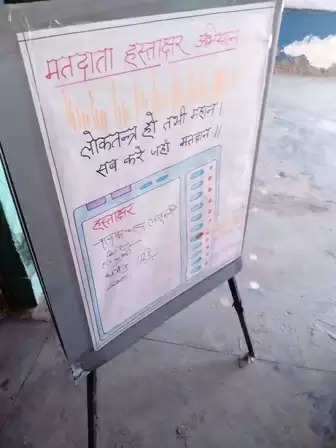 मतदाता हस्ताक्षर अभियान
लोकतन्त्र हो तभी महान।
सब करे जहाँ मतदान॥
हस्ताक्षर